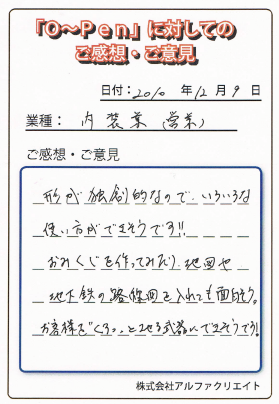 「O～Pen」に対しての
ご感想・ご意見
日付：2010 年 12 月 9 日
業種： 内装業（営業）
ご感想・ご意見
形が独創的なので、いろいろな
使い方ができそうです!!
おみくじを作ってみたり、地図や
地下鉄の路線図を入れても面白そう。
お客様を"くるっ"とさせる武器にできそうです!
株式会社アルファクリエイト